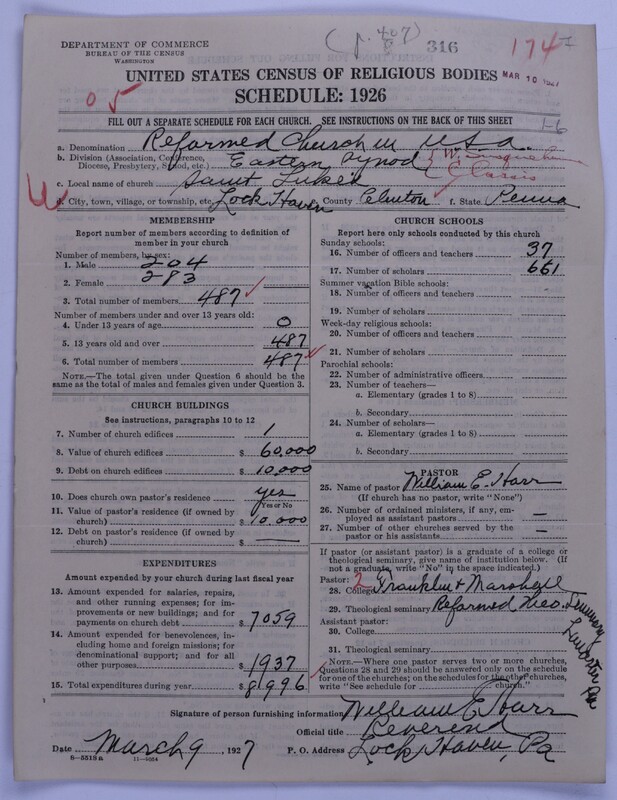 (p. 407)
DEPARTMENT OF COMMERCE
BUREAU OF THE CENSUS
WASHINGTON
316
174
MAR 10 1927
UNITED STATES CENSUS OF RELIGIOUS BODIES
05
SCHEDULE: 1926
FILL OUT A SEPARATE SCHEDULE FOR EACH CHURCH. SEE INSTRUCTIONS ON THE BACK OF THIS SHEET
1-6
a. Denomination Reformed Church in U.S.A.
b. Division (Association, Conference, Diocese, Presbytery, Synod, etc.) Eastern Synod
Classis
c. Local name of church Saint Luke's
d. City, town, village, or township, etc. Lock Haven County Clinton f. State Penna
MEMBERSHIP
Report number of members according to definition of member in your church
Number of members, by sex:
1. Male 204
2. Female 283
3. Total number of members 487
Number of members under and over 13 years old:
4. Under 13 years of age 0
5. 13 years old and over 487
6. Total number of members 487
NOTE.—The total given under Question 6 should be the same as the total of males and females given under Question 3.
CHURCH BUILDINGS
See instructions, paragraphs 10 to 12
7. Number of church edifices 1
8. Value of church edifices $ 60,000
9. Debt on church edifices $ 10,000
10. Does church own pastor's residence yes
Yes or No
11. Value of pastor's residence (if owned by church) $ 10,000
12. Debt on pastor's residence (if owned by church) $ —
EXPENDITURES
Amount expended by your church during last fiscal year
13. Amount expended for salaries, repairs, and other running expenses; for improvements or new buildings; and for payments on church debt $ 7059
14. Amount expended for benevolences, including home and foreign missions; for denominational support; and for all other purposes $ 1937
15. Total expenditures during year $ 8996
CHURCH SCHOOLS
Report here only schools conducted by this church
Sunday schools:
16. Number of officers and teachers 37
17. Number of scholars 661
Summer vacation Bible schools:
18. Number of officers and teachers
19. Number of scholars
Week-day religious schools:
20. Number of officers and teachers
21. Number of scholars
Parochial schools:
22. Number of administrative officers
23. Number of teachers—
a. Elementary (grades 1 to 8)
b. Secondary
24. Number of scholars—
a. Elementary (grades 1 to 8)
b. Secondary
PASTOR
25. Name of pastor William E. Harr
(If church has no pastor, write "None")
26. Number of ordained ministers, if any, employed as assistant pastors —
27. Number of other churches served by the pastor or his assistants —
If pastor (or assistant pastor) is a graduate of a college or theological seminary, give name of institution below. (If not a graduate, write "No" in the space indicated.)
Pastor: 2
28. College Franklin & Marshall
29. Theological seminary Reformed Theo. Seminary Lancaster Pa
Assistant pastor:
30. College
31. Theological seminary
NOTE.—Where one pastor serves two or more churches, Questions 28 and 29 should be answered only on the schedule for one of the churches; on the schedules for the other churches, write "See schedule for church."
Signature of person furnishing information William E. Harr
Official title Reverend
Date March 9, 1927 P. O. Address Lock Haven, Pa
8-5519a 11-5554